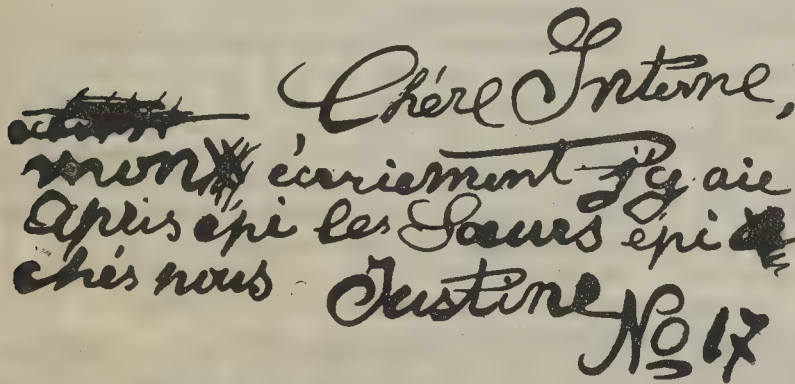 Chére Interne,
mon écriement j'y aie
apris épi les Sœurs épi
chés nous Justine
No 17